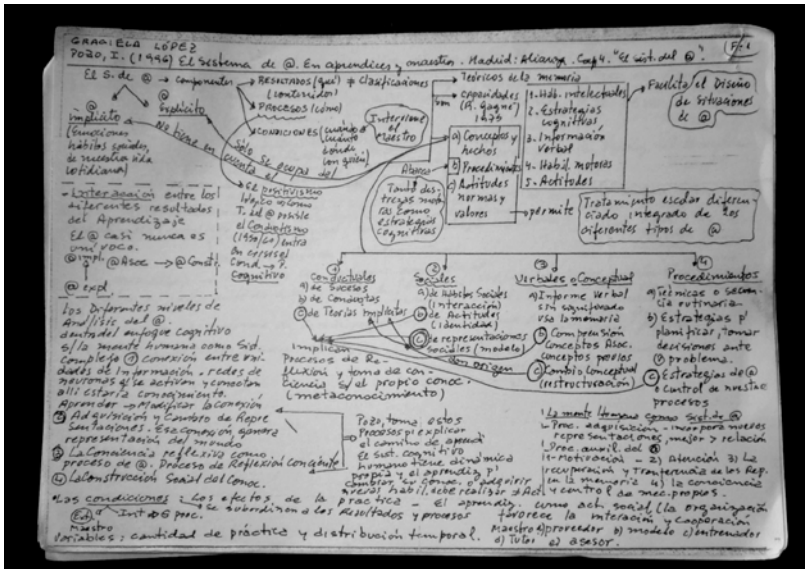 GRACIELA LÓPEZ
POZO, I. (1996) El Sistema de @. En aprendices y maestros. Madrid: Alianza. Cap 4. "El sist. del @".
F-1
El S. de @ → componentes
RESULTADOS (qué) → Clasificaciones
(contenidos)
PROCESOS (cómo)
CONDICIONES (cuándo
cuánto
dónde
con quién)
@ implícito
(Emociones
hábitos sociales,
de nuestra vida
cotidiana)
@ Explícito
No tiene en cuenta el
Sólo se ocupa del
Interviene
el Maestro
Teóricos de la memoria
son
capacidades
(R. Gagné)
1975
1- Háb. intelectuales
2. Estrategias
cognitivas
3. Información
verbal
4- Habil. motoras
5- Actitudes
Facilita el Diseño
de Situaciones
de @
a) Conceptos y
hechos
b) Procedimientos
c) Actitudes
normas y
valores
Abarca
Tanto des-
trezas moto-
ras como
estrategias
cognitivas
permite
Tratamiento escolar diferen-
ciado integrado de los
diferentes tipos de @
- Interacción entre los
diferentes resultados
del Aprendizaje
El @ casi nunca es
unívoco.
@ impl.
@ Asoc → @ Constr.
@ expl
el positivismo
lógico → como
T. del @ posible
el Conductismo
(1950/60) entra
en crisis el
Cond. → P.
Cognitivo
1
Conductuales
a) de Sucesos
b) de Conductas
c) de Teorías Implícitas
2
Sociales
a) de Hábitos Sociales
(interacción)
b) de Actitudes
(identidad)
c) de representaciones
sociales (modelo)
3
Verbales o Conceptual
a) Informe verbal
sin significado
usa la memoria
b) Comprensión
Conceptos Asoc.
conceptos previos
c) Cambio Conceptual
(restructuración)
4
Procedimientos
a) Técnicas o secuen-
cia rutinaria
b) Estrategias p'
planificar, tomar
decisiones ante
problema.
c) Estrategias de @
o control de nuestros
procesos
dan origen
implican
Procesos de Re-
flexión y toma de con-
ciencia s/ el propio conoc.
(metaconocimiento)
Los Diferentes niveles de
Análisis del @.
dentro del enfoque cognitivo
s/ la mente humana como Sist.
complejo 1 conexión entre uni-
dades de Información. redes de
neuronas q' se activan y conectan
allí estaría conocimiento.
Aprender → Modificar la conexión
2 Adquisición y Cambio de Repre-
sentaciones. Esa conexión genera
representación del mundo
3 La Conciencia reflexiva como
proceso de @. Proceso de Reflexión Consciente
4 La Construcción Social del Conoc.
Pozo, toma estos
Procesos p' explicar
el camino de aprendi
El sist. cognitivo
humano tiene dinámica
propia y el aprendiz p'
cambiar su conoc. o adquirir
nueva habil. debe realizar
La mente Humana como Sist. de @
- Proc. adquisición - incorpora nuevas
representaciones, mejor > relación
- Proc. auxil. del @
1- Motivación - 2) Atención 3) La
recuperación y Transferencia de las Rep.
en la memoria 4) la conciencia
y control de mec. propios.
• Las condiciones: Los efectos de la practica - El aprendiz. como act. social (la organización
se subordinan a los Resultados y procesos
favorece la interación y cooperación
Ext. Int
Maestro
Variables: cantidad de práctica y distribución temporal.
Maestro a) proveedor b) modelo c) entrenador
d) Tutor e) asesor.